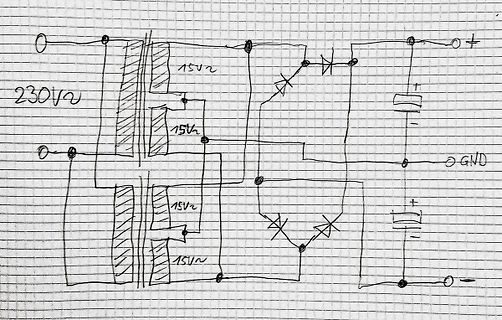 +
15V~
230V~
+
-
15V~
GND
15V~
+
-
15V~
-